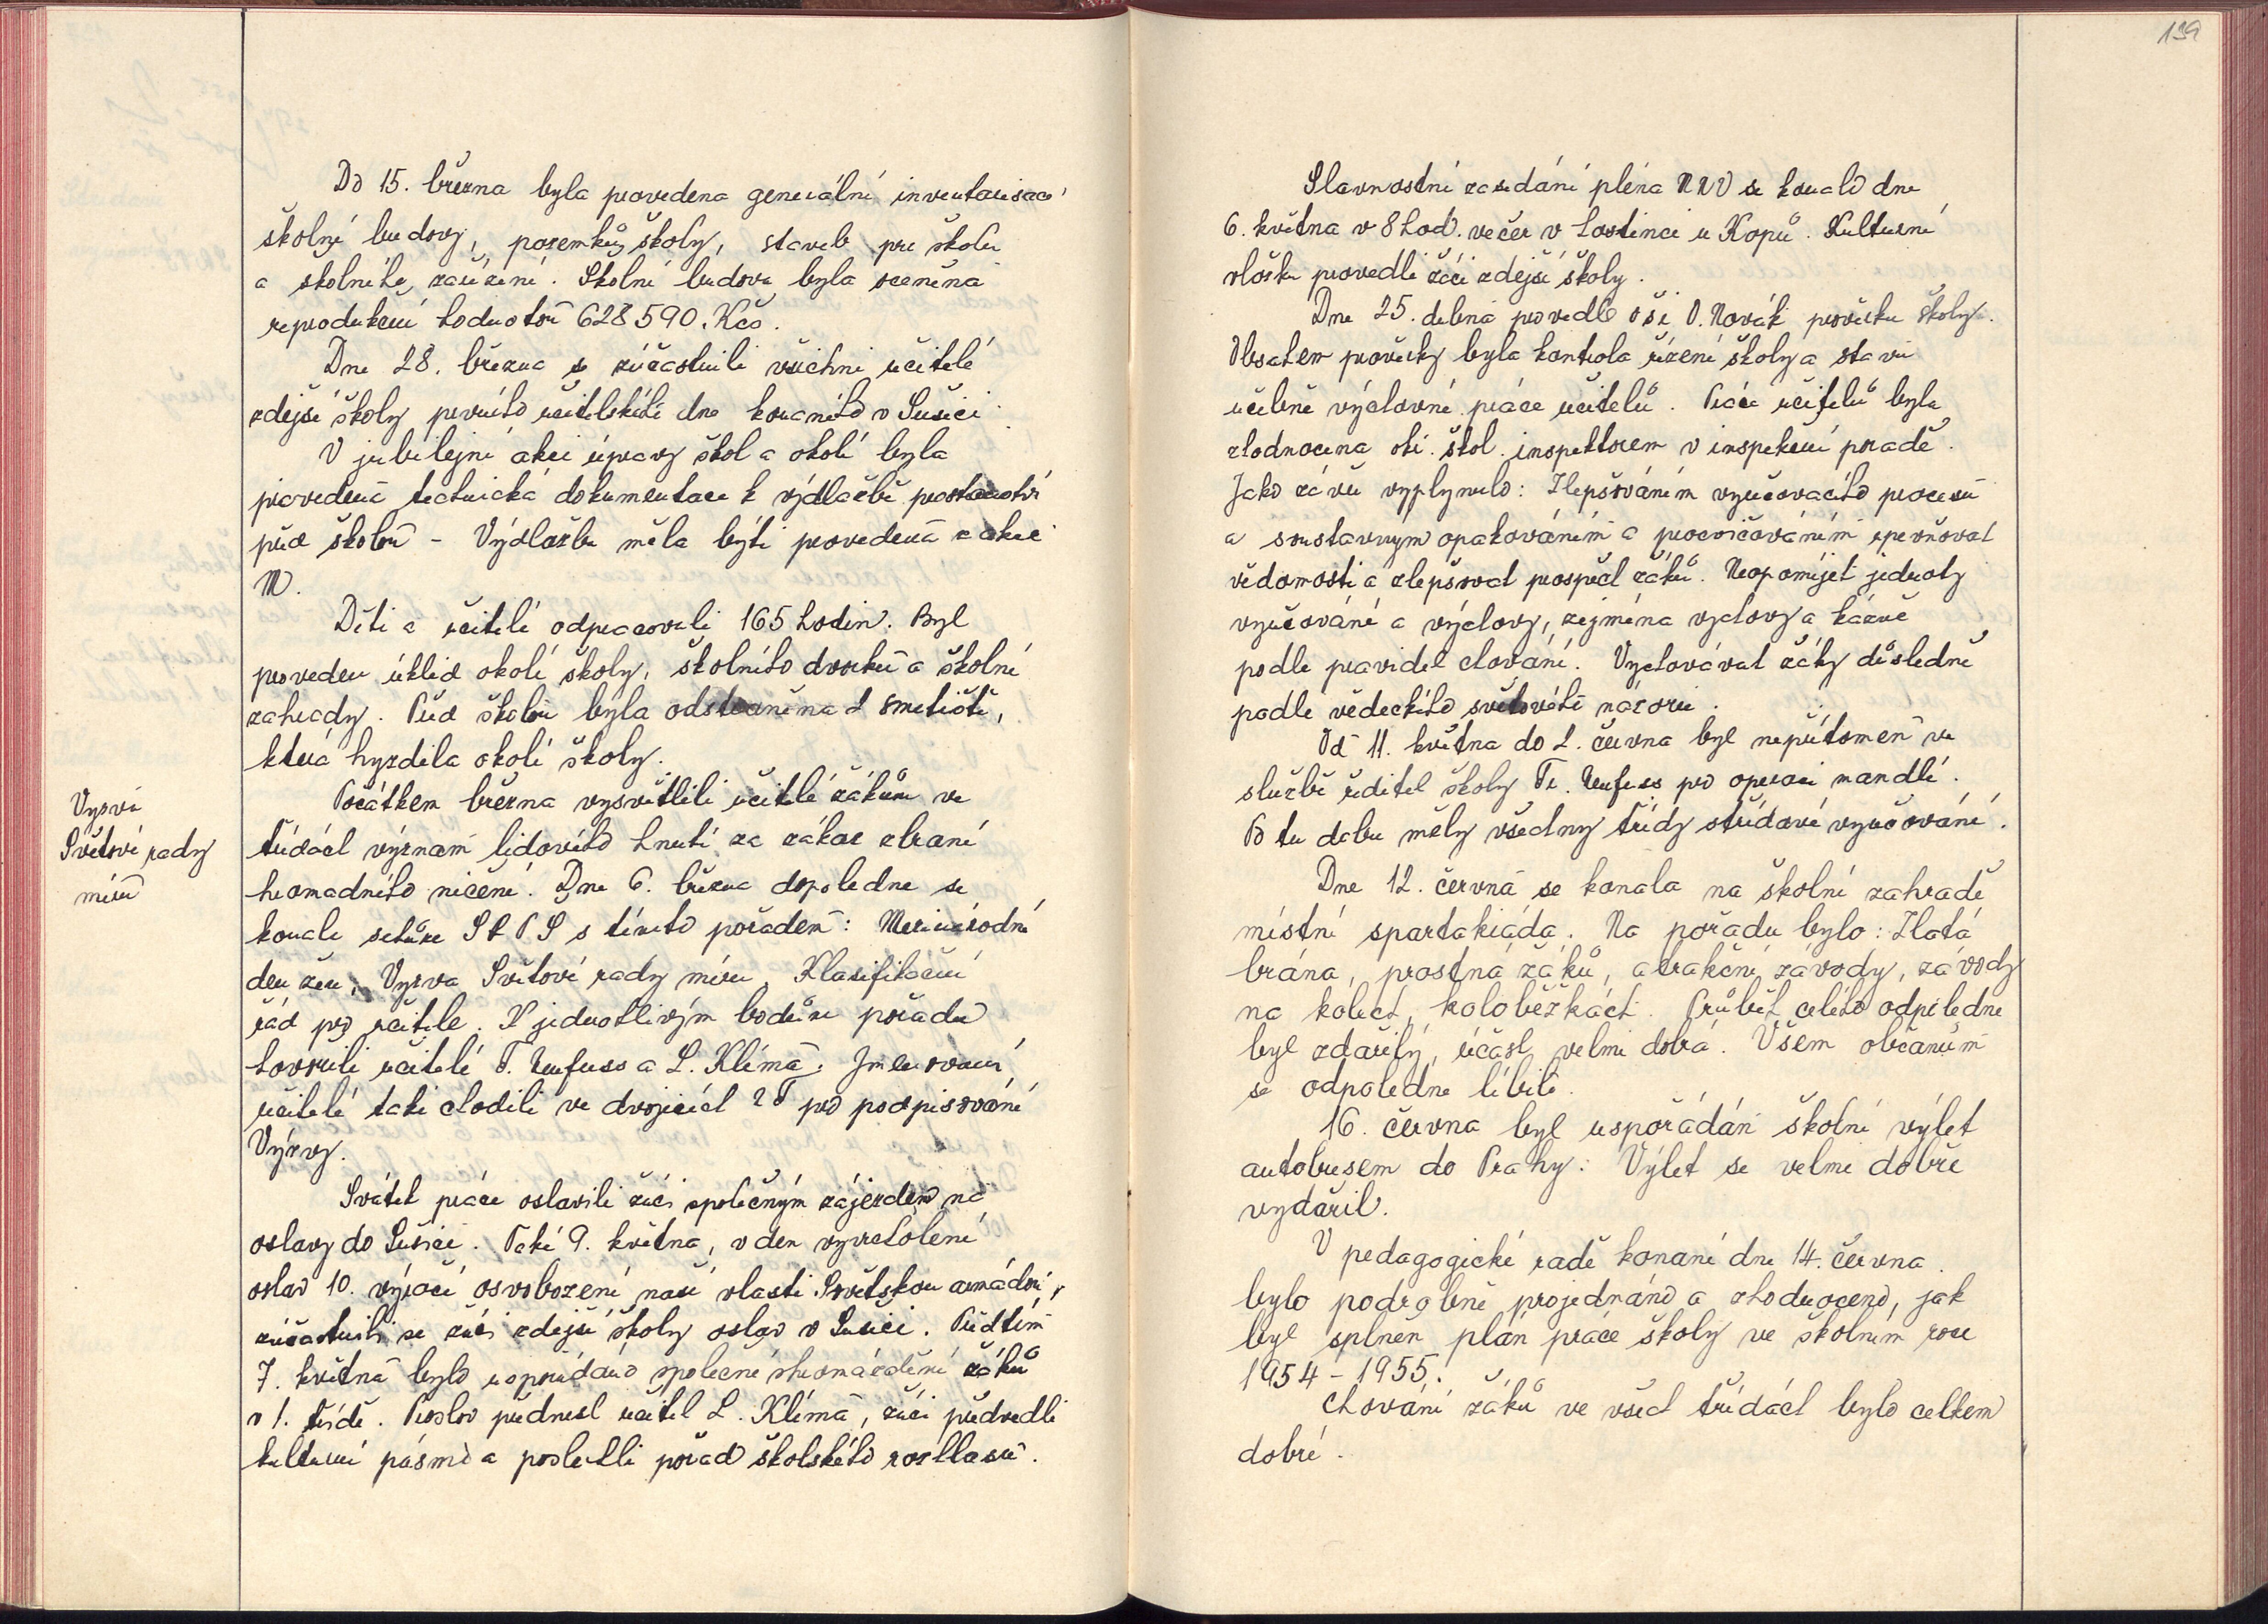 Do 15. března byla provedena generální inventarisace
školní budovy, pozemků školy, staveb pro školu
a školního zařízení. Školní budova byla oceněna
reprodukční hodnotou 628 590.Kčs.
Dne 28. března se zúčastnili všichni učitelé
zdejší školy prvního učitelského dne konaného v Sušici.
V jubilejní akci úpravy škol a okolí byla
provedena technická dokumentace k výdlažbě prostranství
před školou - Výdlažba měla býti provedena z akce
M.
Děti a učitelé odpracovali 165 hodin. Byl
proveden úklid okolí školy, školního dvorku a školní
zahrady. Před školou byla odstraněna 2 smetiště,
která hyzdila okolí školy.
Výzva
Světové rady
míru
Počátkem března vysvětlili učitelé žákům ve
třídách význam lidového hnutí za zákaz zbraní
hromadného ničení. Dne 6. března dopoledne se
konala schůze SRPŠ s tímto pořadem: Mezinárodní
den žen, Výzva Světové rady míru, Klasifikační
řád pro učitele. K jednotlivým bodům pořadu
hovořili učitelé F. Neufuss a L. Klíma. Jmenovaní
učitelé také chodili ve dvojicích 2F pro podpisování
Výzvy.
Svátek práce oslavili žáci společným zájezdem na
oslavy do Sušice. Také 9. května, v den vyvrcholení
oslav 10. výročí osvobození naší vlasti Sovětskou armádou,
zúčastnili se žáci zdejší školy oslav v Sušici. Předtím
7. května bylo uspořádáno společné shromáždění žáků
v 1. třídě. Proslov přednesl učitel L. Klíma, žáci předvedli
kulturní pásmo a poslechli pořad školského rozhlasu.
139
Slavnostní zasedání pléna MNV se konalo dne
6. května v 8 hod. večer v hostinci u Kopů. Kulturní
vložku provedli žáci zdejší školy.
Dne 25. dubna provedl oši O. Novák prověrku školy.
Obsahem prověrky byla kontrola řízení školy a stavu
učebně výchovné práce učitelů. Práce učitelů byla
zhodnocena okr. škol. inspektorem v inspekční poradě.
Jako závěr vyplynulo: Zlepšováním vyučovacího procesu
a soustavným opakováním a procvičováním upevňovat
vědomosti a zlepšovat prospěch žáků. Neopomíjet jednoty
vyučování a výchovy, zejména výchovy a kázně
podle pravidel chování. Vychovávat žáky důsledně
podle vědeckého světového názoru.
Od 11. května do 2. června byl nepřítomen ve
službě ředitel školy Fr. Neufuss pro operaci mandlí.
Po tu dobu měly všechny třídy střídavé vyučování.
Dne 12. června se konala na školní zahradě
místní spartakiáda. Na pořadu bylo: Zlatá
brána, prostná žáků, atrakční závody, závody
na kolech, koloběžkách. Průběh celého odpoledne
byl zdařilý, účast velmi dobrá. Všem občanům
se odpoledne líbilo.
16. června byl uspořádán školní výlet
autobusem do Prahy: Výlet se velmi dobře
vydařil.
V pedagogické radě konané dne 14. června
bylo podrobně projednáno a zhodnoceno, jak
byl splněn plán práce školy ve školním roce
1954 - 1955.
Chování žáků ve všech třídách bylo celkem
dobré.